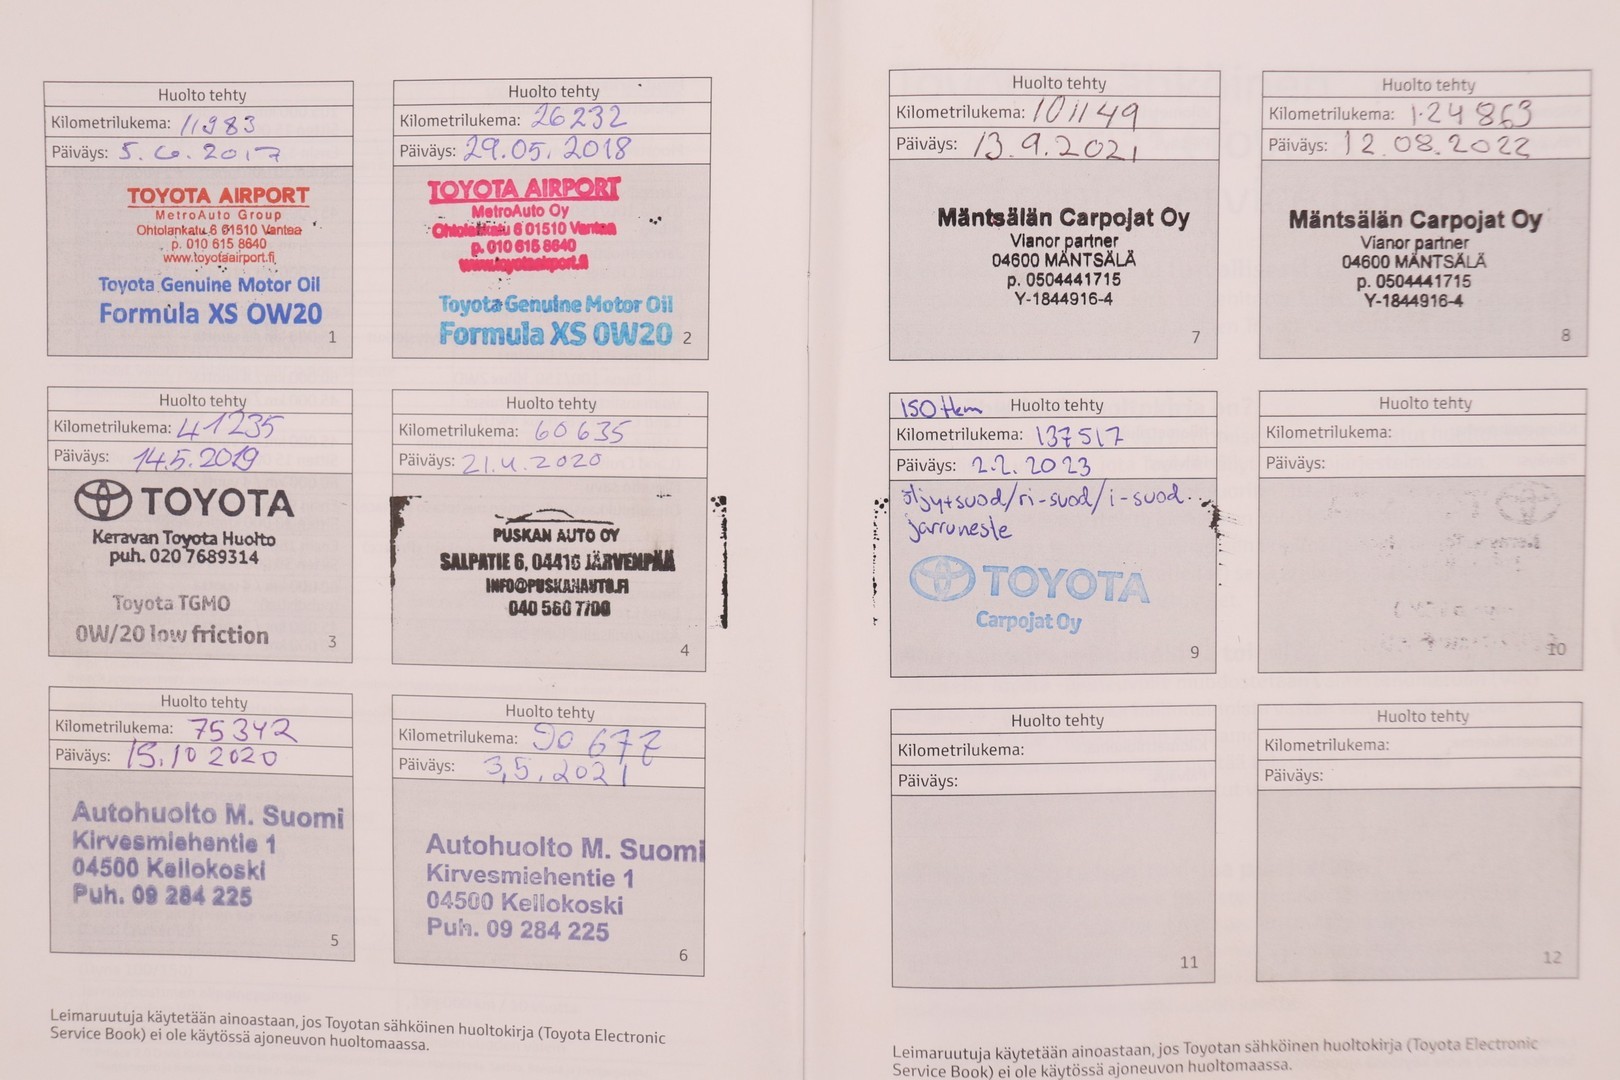 Huolto tehty
Kilometrilukema: 11983
Päiväys: 5.6.2017
TOYOTA AIRPORT
MetroAuto Group
Ohtolankatu 6 01510 Vantaa
p. 010 615 8640
www.toyotaairport.fi
Toyota Genuine Motor Oil
Formula XS 0W20
1
Huolto tehty
Kilometrilukema: 26232
Päiväys: 29.05.2018
TOYOTA AIRPORT
MetroAuto Oy
Ohtolankatu 6 01510 Vantaa
p. 010 615 8640
www.toyotaairport.fi
Toyota Genuine Motor Oil
Formula XS 0W20
2
Huolto tehty
Kilometrilukema: 41235
Päiväys: 14.5.2019
TOYOTA
Keravan Toyota Huolto
puh. 020 7689314
Toyota TGMO
0W/20 low friction
3
Huolto tehty
Kilometrilukema: 60635
Päiväys: 21.4.2020
PUSKAN AUTO OY
SALPATIE 6, 04410 JÄRVENPÄÄ
INFO@PUSKANAUTO.FI
040 560 7700
4
Huolto tehty
Kilometrilukema: 75342
Päiväys: 15.10 2020
Autohuolto M. Suomi
Kirvesmiehentie 1
04500 Kellokoski
Puh. 09 284 225
5
Huolto tehty
Kilometrilukema: 90 677
Päiväys: 3.5.2021
Autohuolto M. Suomi
Kirvesmiehentie 1
04500 Kellokoski
Puh. 09 284 225
6
Leimaruutuja käytetään ainoastaan, jos Toyotan sähköinen huoltokirja (Toyota Electronic
Service Book) ei ole käytössä ajoneuvon huoltomaassa.
Huolto tehty
Kilometrilukema: 101149
Päiväys: 13.9.2021
Mäntsälän Carpojat Oy
Vianor partner
04600 MÄNTSÄLÄ
p. 0504441715
Y-1844916-4
7
Huolto tehty
Kilometrilukema: 124863
Päiväys: 12.08.2022
Mäntsälän Carpojat Oy
Vianor partner
04600 MÄNTSÄLÄ
p. 0504441715
Y-1844916-4
8
150tkm Huolto tehty
Kilometrilukema: 137517
Päiväys: 2.2.2023
öljy+suod/ri-suod/i-suod.
jarruneste
TOYOTA
Carpojat Oy
9
Huolto tehty
Kilometrilukema:
Päiväys:
10
Huolto tehty
Kilometrilukema:
Päiväys:
11
Huolto tehty
Kilometrilukema:
Päiväys:
12
Leimaruutuja käytetään ainoastaan, jos Toyotan sähköinen huoltokirja (Toyota Electronic
Service Book) ei ole käytössä ajoneuvon huoltomaassa.